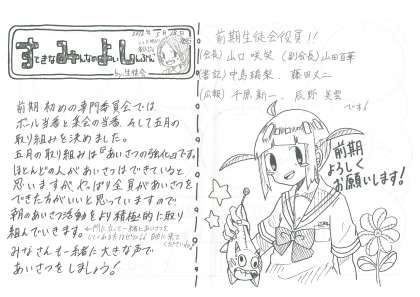 すてきなみんなのよいしんぶん
by 生徒会
前期 初めの専門委員会では
ボール当番と集会の当番、そして五月の
取り組みを決めました。
五月の取り組みは『あいさつの強化』です。
ほとんどの人があいさつはできていると
思いますが、やっぱり全員があいさつを
できた方がいいと思っていますので
朝のあいさつ活動をより積極的に取り
組んでいきます。
みなさんも一緒に大きな声で
あいさつをしましょう!
前期生徒会役員!!
(会長) 山口 咲笑 (副会長) 山田百華
(書記) 中島 藤田文二
(広報) 千原新一 辰野 美雲
前期
よろしく
お願いします!